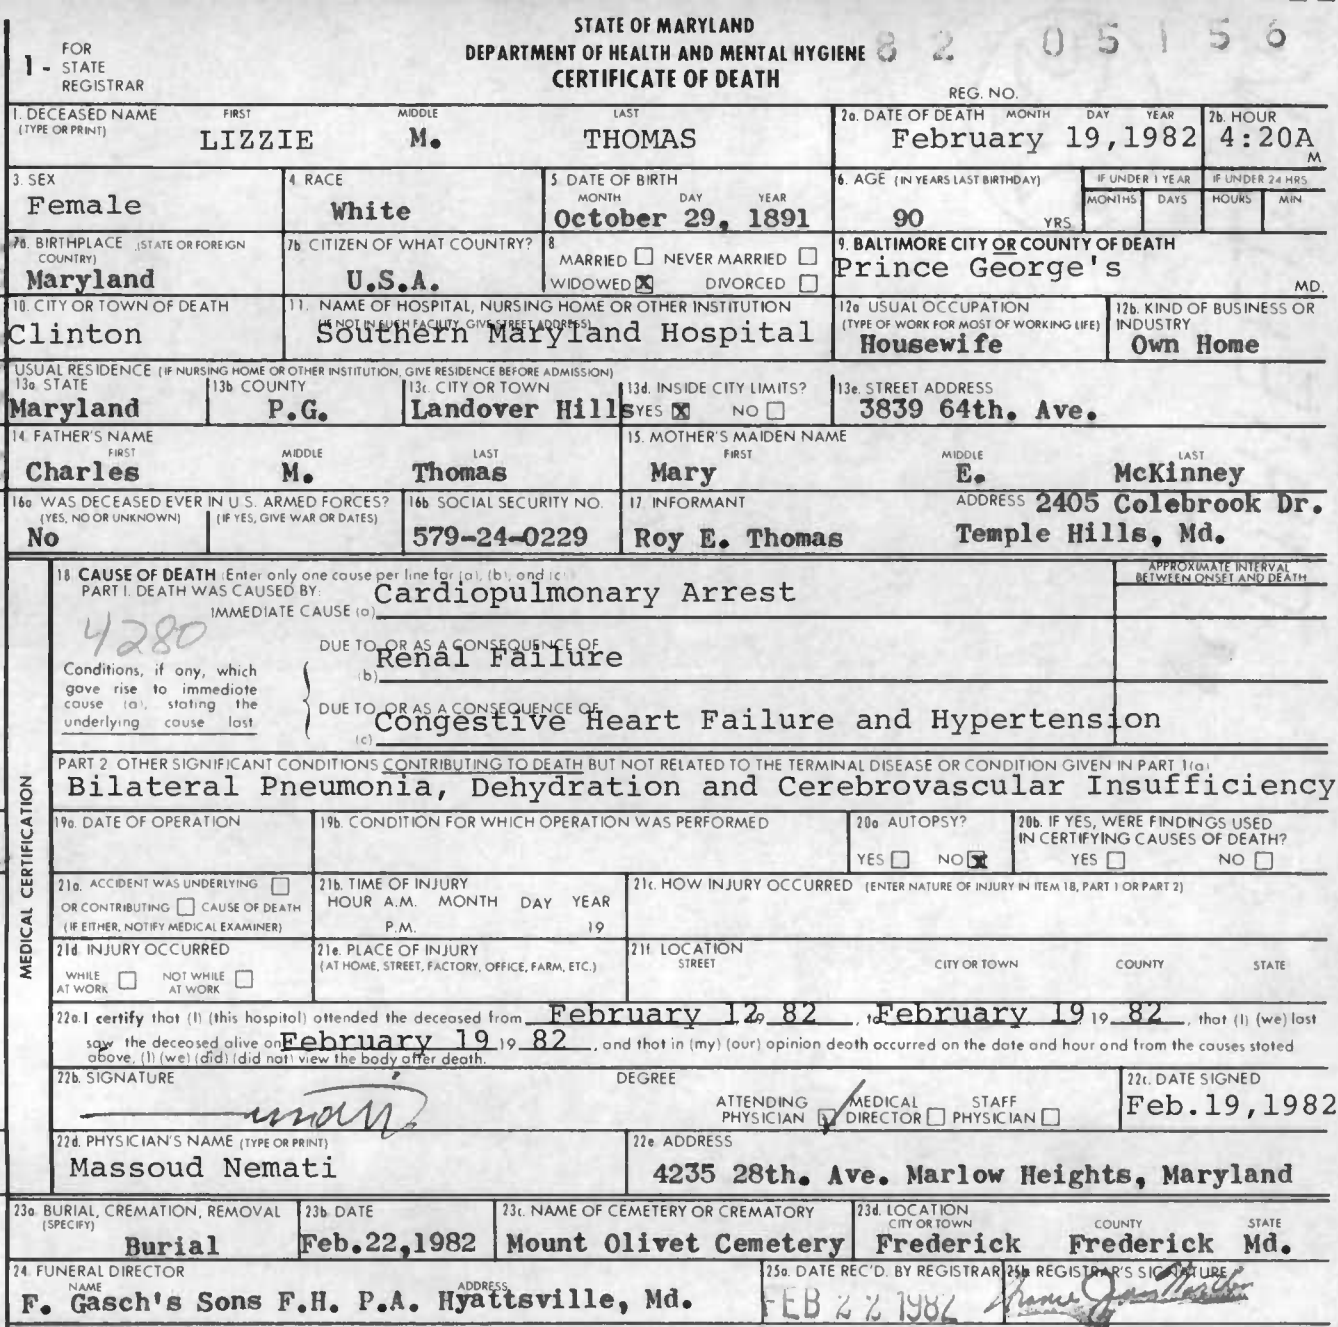 STATE OF MARYLAND
DEPARTMENT OF HEALTH AND MENTAL HYGIENE 82 05156
CERTIFICATE OF DEATH
1 - FOR STATE REGISTRAR
REG. NO.
1. DECEASED NAME (TYPE OR PRINT) FIRST MIDDLE LAST
LIZZIE M. THOMAS
2a. DATE OF DEATH MONTH DAY YEAR
February 19,1982
2b. HOUR
4:20A M
3. SEX
Female
4. RACE
White
5. DATE OF BIRTH
MONTH DAY YEAR
October 29, 1891
6. AGE (IN YEARS LAST BIRTHDAY)
90 YRS
IF UNDER 1 YEAR
MONTHS DAYS
IF UNDER 24 HRS
HOURS MIN
7a. BIRTHPLACE (STATE OR FOREIGN COUNTRY)
Maryland
7b. CITIZEN OF WHAT COUNTRY?
U.S.A.
8.
MARRIED NEVER MARRIED
WIDOWED X DIVORCED
9. BALTIMORE CITY OR COUNTY OF DEATH
Prince George's
MD.
10. CITY OR TOWN OF DEATH
Clinton
11. NAME OF HOSPITAL, NURSING HOME OR OTHER INSTITUTION
(IF NOT IN SUCH FACILITY, GIVE STREET ADDRESS)
Southern Maryland Hospital
12a USUAL OCCUPATION
(TYPE OF WORK FOR MOST OF WORKING LIFE)
Housewife
12b. KIND OF BUSINESS OR INDUSTRY
Own Home
USUAL RESIDENCE (IF NURSING HOME OR OTHER INSTITUTION, GIVE RESIDENCE BEFORE ADMISSION)
13a. STATE
Maryland
13b COUNTY
P.G.
13c. CITY OR TOWN
Landover Hills
13d. INSIDE CITY LIMITS?
YES X NO
13e. STREET ADDRESS
3839 64th. Ave.
14. FATHER'S NAME
FIRST MIDDLE LAST
Charles M. Thomas
15. MOTHER'S MAIDEN NAME
FIRST MIDDLE LAST
Mary E. McKinney
16a WAS DECEASED EVER IN U.S. ARMED FORCES?
(YES, NO OR UNKNOWN) (IF YES, GIVE WAR OR DATES)
No
16b SOCIAL SECURITY NO.
579-24-0229
17. INFORMANT
Roy E. Thomas
ADDRESS 2405 Colebrook Dr.
Temple Hills, Md.
MEDICAL CERTIFICATION
18 CAUSE OF DEATH (Enter only one cause per line for (a), (b), and (c)
PART I. DEATH WAS CAUSED BY:
IMMEDIATE CAUSE (a) Cardiopulmonary Arrest
APPROXIMATE INTERVAL
BETWEEN ONSET AND DEATH
4280
Conditions, if any, which
gave rise to immediate
cause (a), stating the
underlying cause last
DUE TO, OR AS A CONSEQUENCE OF
(b) Renal Failure
DUE TO, OR AS A CONSEQUENCE OF
(c) Congestive Heart Failure and Hypertension
PART 2 OTHER SIGNIFICANT CONDITIONS CONTRIBUTING TO DEATH BUT NOT RELATED TO THE TERMINAL DISEASE OR CONDITION GIVEN IN PART 1(a)
Bilateral Pneumonia, Dehydration and Cerebrovascular Insufficiency
19a. DATE OF OPERATION
19b. CONDITION FOR WHICH OPERATION WAS PERFORMED
20a AUTOPSY?
YES NO X
20b. IF YES, WERE FINDINGS USED
IN CERTIFYING CAUSES OF DEATH?
YES NO
21a. ACCIDENT WAS UNDERLYING
OR CONTRIBUTING CAUSE OF DEATH
(IF EITHER, NOTIFY MEDICAL EXAMINER)
21b. TIME OF INJURY
HOUR A.M. MONTH DAY YEAR
P.M. 19
21c. HOW INJURY OCCURRED (ENTER NATURE OF INJURY IN ITEM 18, PART 1 OR PART 2)
21d INJURY OCCURRED
WHILE AT WORK NOT WHILE AT WORK
21e. PLACE OF INJURY
(AT HOME, STREET, FACTORY, OFFICE, FARM, ETC.)
21f. LOCATION
STREET CITY OR TOWN COUNTY STATE
22a. I certify that (I) (this hospital) attended the deceased from February 12, 82, to February 19 19 82, that (I) (we) last
saw the deceased alive on February 19 19 82, and that in (my) (our) opinion death occurred on the date and hour and from the causes stated
above, (I) (we) (did) (did not) view the body after death.
22b. SIGNATURE
DEGREE
ATTENDING PHYSICIAN MEDICAL DIRECTOR STAFF PHYSICIAN
22c. DATE SIGNED
Feb.19,1982
22d. PHYSICIAN'S NAME (TYPE OR PRINT)
Massoud Nemati
22e ADDRESS
4235 28th. Ave. Marlow Heights, Maryland
23a. BURIAL, CREMATION, REMOVAL
(SPECIFY)
Burial
23b. DATE
Feb.22,1982
23c. NAME OF CEMETERY OR CREMATORY
Mount Olivet Cemetery
23d. LOCATION
CITY OR TOWN COUNTY STATE
Frederick Frederick Md.
24. FUNERAL DIRECTOR
NAME ADDRESS
F. Gasch's Sons F.H. P.A. Hyattsville, Md.
25a. DATE REC'D. BY REGISTRAR
FEB 22 1982
25b REGISTRAR'S SIGNATURE